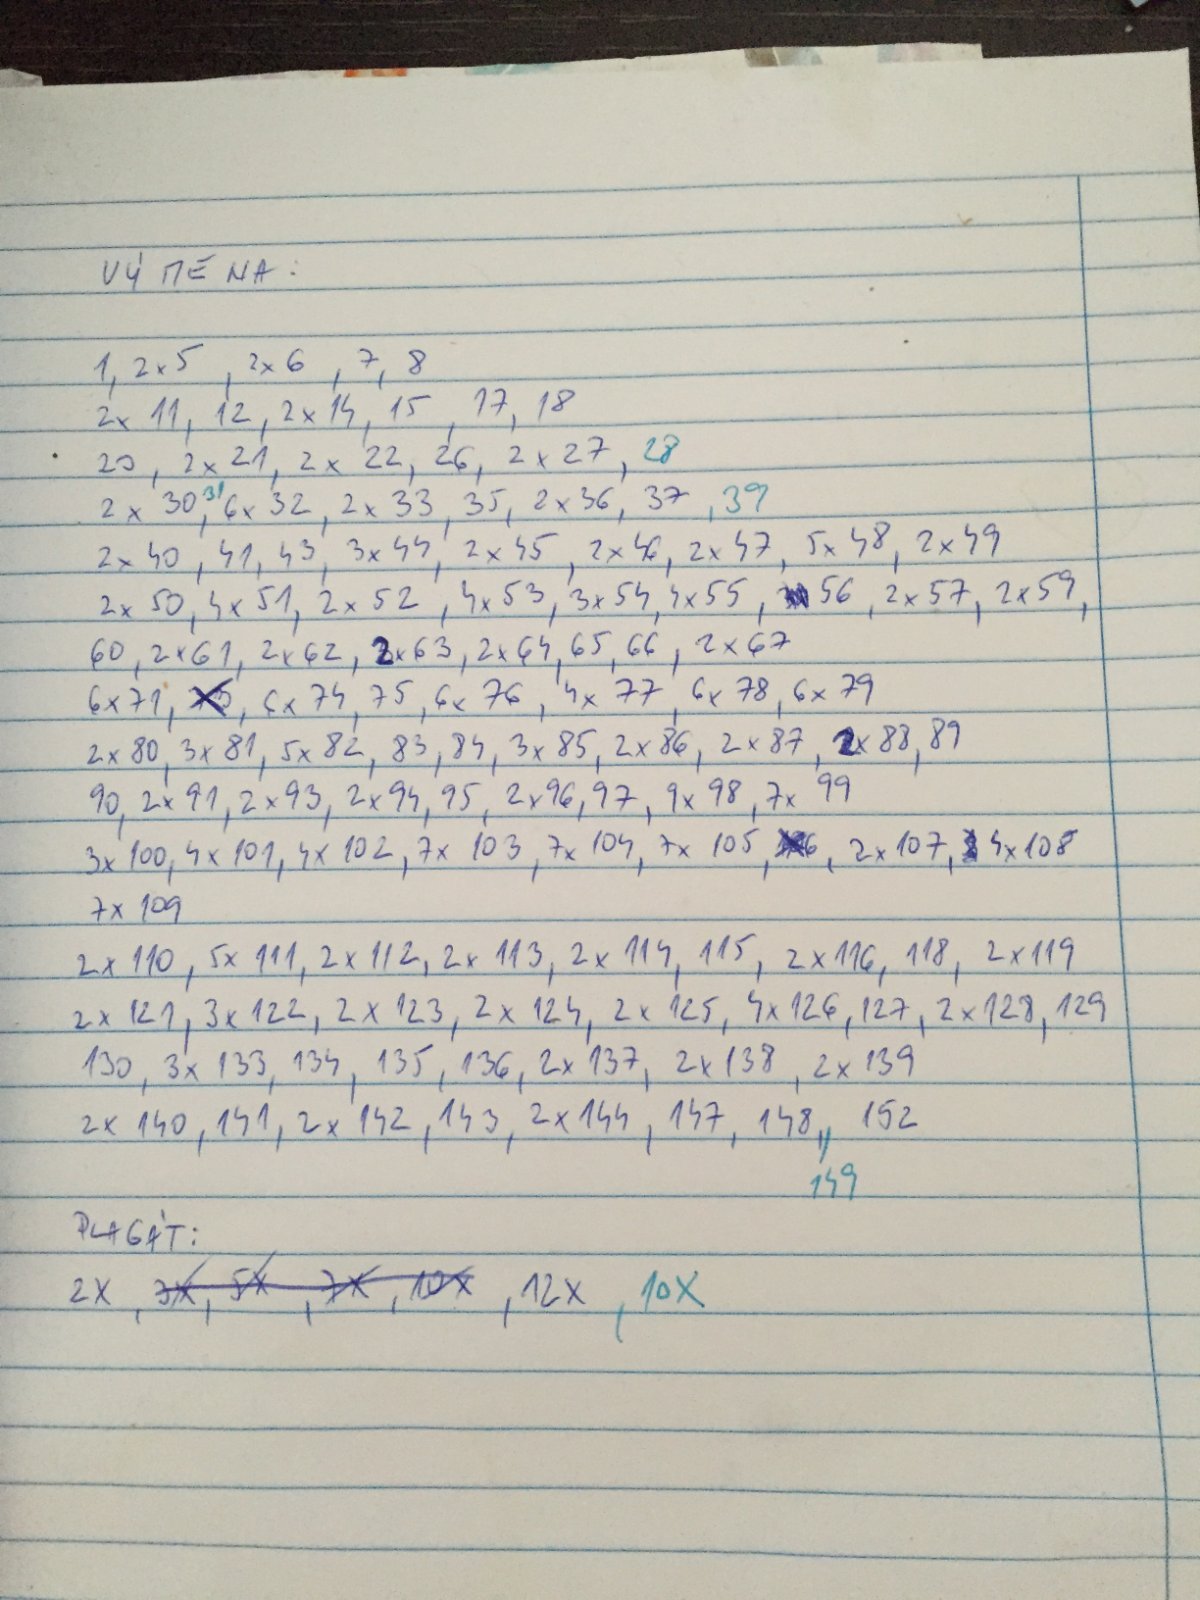 VÝMENA:
1, 2x5, 2x6, 7, 8
2x 11, 12, 2x14, 15, 17, 18
20, 2x21, 2x 22, 26, 2x27, 28
2x 30, 31 6x 32, 2x33, 35, 2x36, 37, 39
2x40, 41, 43, 3x44, 2x45, 2x46, 2x47, 5x48, 2x49
2x50, 4x51, 2x52, 4x53, 3x54, 4x55, 56, 2x57, 2x59,
60, 2x61, 2x62, 2x63, 2x64, 65, 66, 2x67
6x71, 6x74, 75, 6x 76, 4x 77, 6x 78, 6x 79
2x80, 3x81, 5x82, 83, 84, 3x85, 2x86, 2x87, 2x88, 89
90, 2x91, 2x93, 2x94, 95, 2x96, 97, 9x98, 7x 99
3x100, 4x101, 4x 102, 7x 103, 7x 104, 7x 105, 2x107, 4x108
7x 109
2x 110, 5x 111, 2x112, 2x 113, 2x 114, 115, 2x116, 118, 2x119
2x 121, 3x122, 2x123, 2x 124, 2x 125, 4x126, 127, 2x128, 129
130, 3x 133, 134, 135, 136, 2x137, 2x138, 2x139
2x 140, 141, 2x 142, 143, 2x144, 147, 148, 152
149
PLAGÁT:
2X, 3X, 5X, 7X, 10X, 12X, 10X